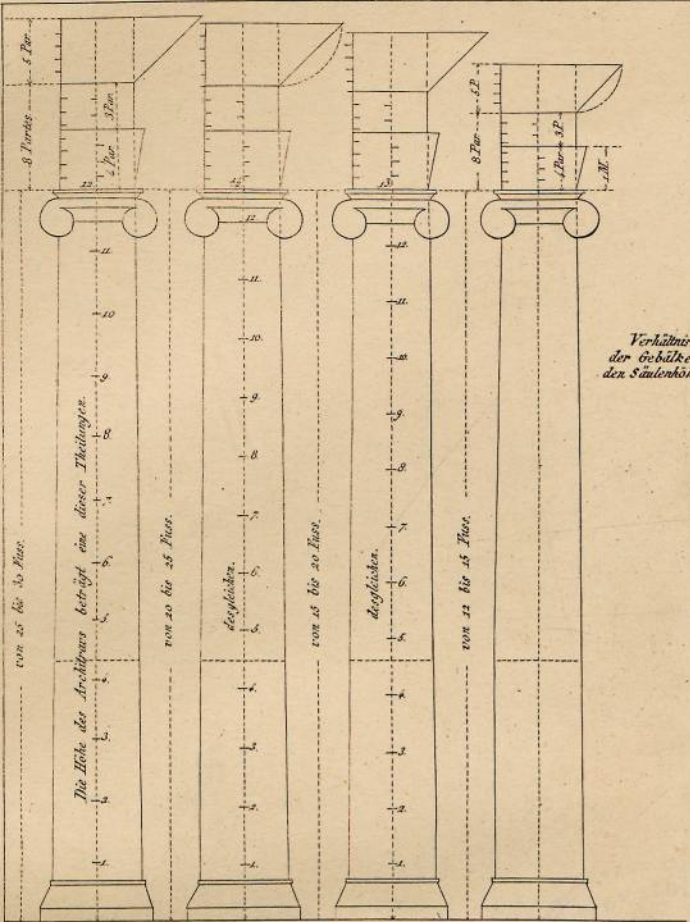 5 Par.
8 Partes
3 Par.
4 Par
12.
11.
10
9.
8.
7.
6.
5.
4.
3.
2.
1.
von 25 bis 30 Fuss.
Die Höhe des Architravs beträgt eine dieser Theilungen.
12.
11.
10.
9.
8.
7.
6.
5.
4.
3.
2.
1.
von 20 bis 25 Fuss.
desgleichen.
13.
12.
11.
10.
9.
8.
7.
6.
5.
4.
3.
2.
1.
von 15 bis 20 Fuss.
desgleichen.
5. P.
8 Par
3. P.
4 Par
1 M.
von 12 bis 15 Fuss.
Verhältnis
der Gebälke
den Säulenhöh